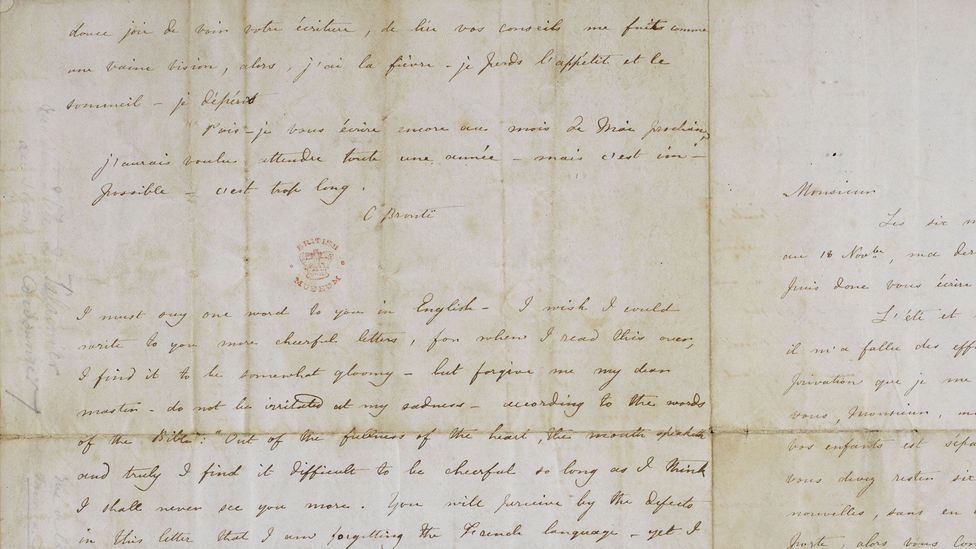 douce joie de voir votre écriture, de lire vos conseils me fuit comme
une vaine vision, alors, j'ai la fièvre - je perds l'appétit et le
sommeil - je dépéris
Puis-je vous écrire encore au mois de Mai prochain,
j'aurais voulu attendre toute une année - mais c'est im-
possible - c'est trop long.
C Brontë
BRITISH
MUSEUM
I must say one word to you in English - I wish I could
write to you more cheerful letters, for when I read this over,
I find it to be somewhat gloomy - but forgive me my dear
master - do not be irritated at my sadness - according to the words
of the Bible: "Out of the fullness of the heart, the mouth speaketh
and truly I find it difficult to be cheerful so long as I think
I shall never see you more. You will perceive by the defects
in this letter that I am forgetting the French language - yet I
Monsieur
Les six m
au 18 Novbre, ma der
puis donc vous écrire
L'été et
il m'a fallu des eff
privation que je me
vous, Monsieur, m
vos enfants est sépa
vous devez rester six
nouvelles, sans en
porte, alors vous con